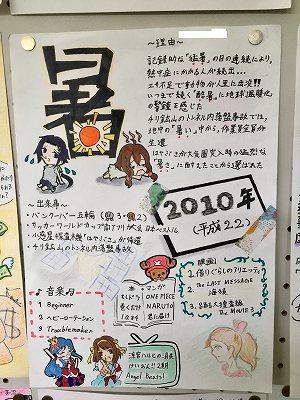 暑
～理由～
記録的な「猛暑」の日の連続により、
熱中症にかかる人が続出…
エサ不足で動物が人里に出没!!
いつまでも続く「酷暑」に地球温暖化
の警鐘を感じた
チリ鉱山のトンネル内落盤事故では、
地中の「暑い」中から、作業員全員が
生還
はやぶさが大気圏突入時の猛烈な
「暑さ」に耐えたことから選ばれた
～出来事～
・バンクーバー五輪(銀3・銅2)
・サッカーワールドカップ南アフリカ大会 日本ベスト16
・小惑星探査機「はやぶさ」が帰還
・チリ鉱山のトンネル内落盤事故
2010年
(平成22)
♪音楽♪
1 Beginner
2 ヘビーローテーション
3 Troublemaker
本・マンガ
もしドラ
巻くだけ
1Q84
ONE PIECE
NARUTO
君に届け
映画
1. 借りぐらしのアリエッティ
2. THE LAST MESSAGE
海猿
3. 踊る大捜査線
THE MOVIE 3
涼宮ハルヒの消失
けいおん!! 2期
Angel Beats!